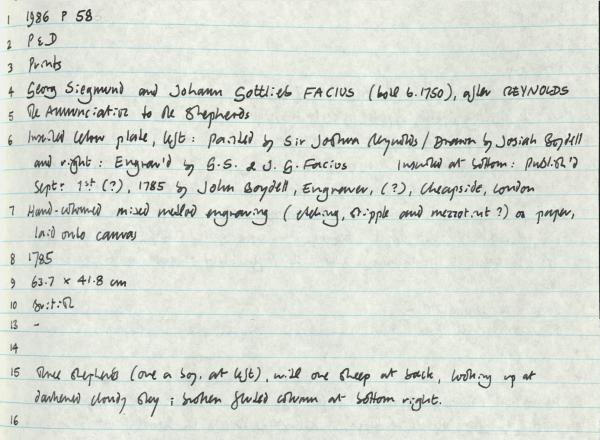 1 1986 P 58
2 P&D
3 Prints
4 Georg Siegmund and Johann Gottlieb FACIUS (both b.1750), after REYNOLDS
5 The Annunciation to the Shepherds
6 Inscribed below plate, left: Painted by Sir Joshua Reynolds / Drawn by Josiah Boydell
and right: Engrav'd by G.S. & J.G. Facius Inscribed at bottom: Publish'd
Sept: 1st (?), 1785 by John Boydell, Engraver, (?), Cheapside, London
7 Hand-coloured mixed method engraving (etching, stipple and mezzotint?) on paper,
laid onto canvas
8 1785
9 63.7 x 41.8 cm
10 British
13 -
14
15 Three shepherds (one a boy, at left), with one sheep at back, looking up at
darkened cloudy sky; broken fluted column at bottom right.
16